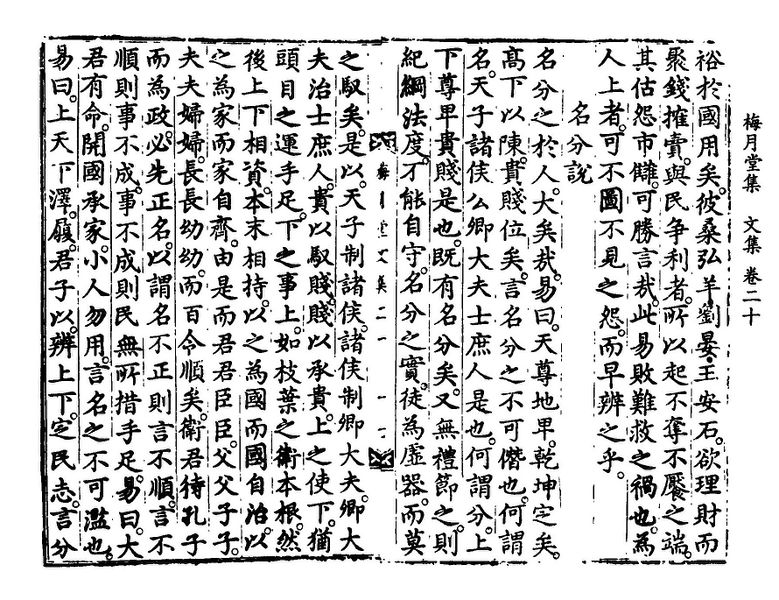 梅月堂集 文集 卷二十
裕於國用矣。彼桑弘羊劉晏王安石。欲理財而
聚錢搉賣。與民爭利者。所以起不奪不饜之端。
其估怨市讎。可勝言哉。此易敗難救之禍也。為
人上者。可不圖不見之怨。而早辨之乎。
名分說
名分之於人。大矣哉。易曰。天尊地卑。乾坤定矣。
高下以陳。貴賤位矣。言名分之不可僭也。何謂
名。天子諸侯公卿大夫士庶人是也。何謂分。上
下尊卑貴賤是也。既有名分矣。又無禮節之。則
紀綱法度。不能自守。名分之實。徒為虛器。而莫
之馭矣。是以。天子制諸侯。諸侯制卿大夫。卿大
夫治士庶人。貴以馭賤。賤以承貴。上之使下。猶
頭目之運手足。下之事上。如枝葉之衛本根。然
後上下相資。本末相持。以之為國而國自治。以
之為家而家自齊。由是而君君臣臣。父父子子。
夫夫婦婦。長長幼幼。而百令順矣。衛君待孔子
而為政。必先正名。以謂名不正則言不順。言不
順則事不成。事不成則民無所措手足。易曰。大
君有命。開國承家。小人勿用。言名之不可濫也。
易曰。上天下澤。履。君子以。辨上下。定民志。言分